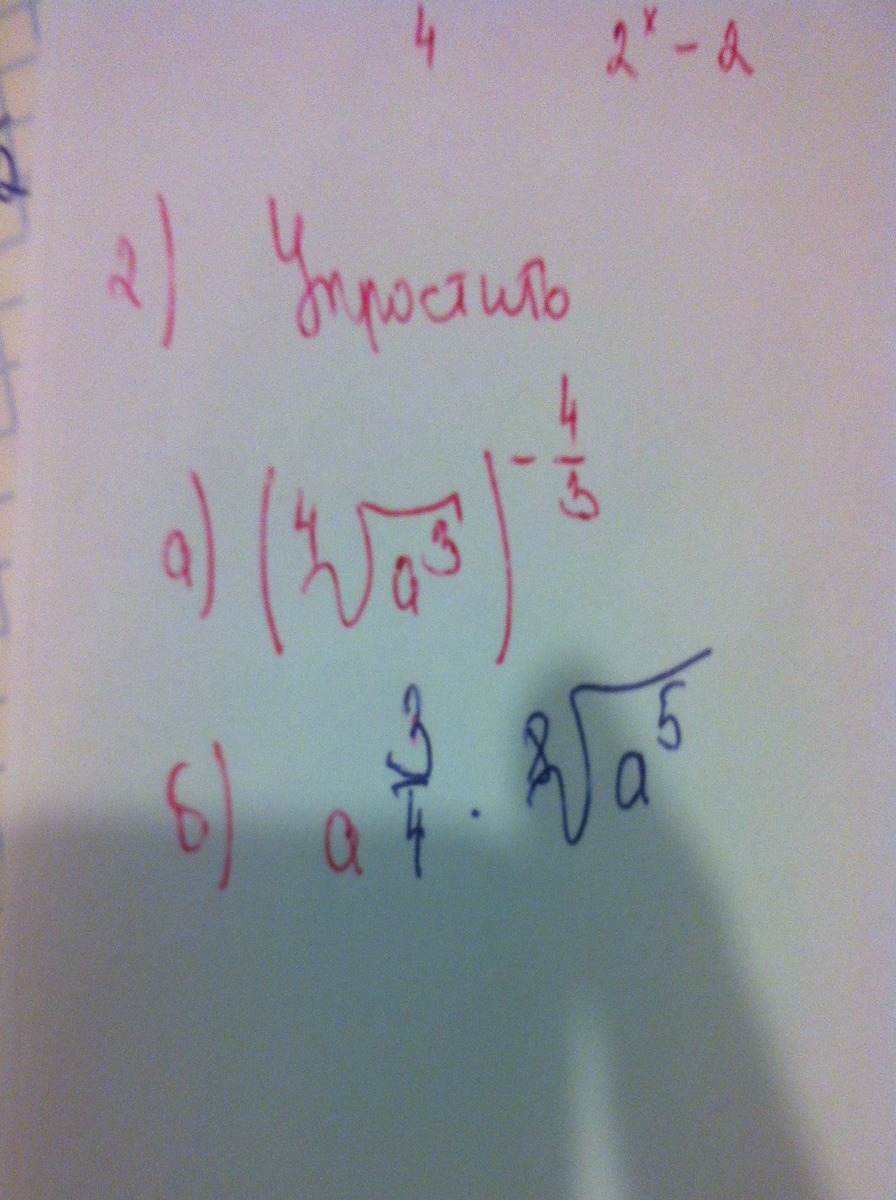 4 2ˣ - 2
2) Упростить
а) (∜a³)^(-4/3)
б) a^(3/4) · ⁸√a⁵